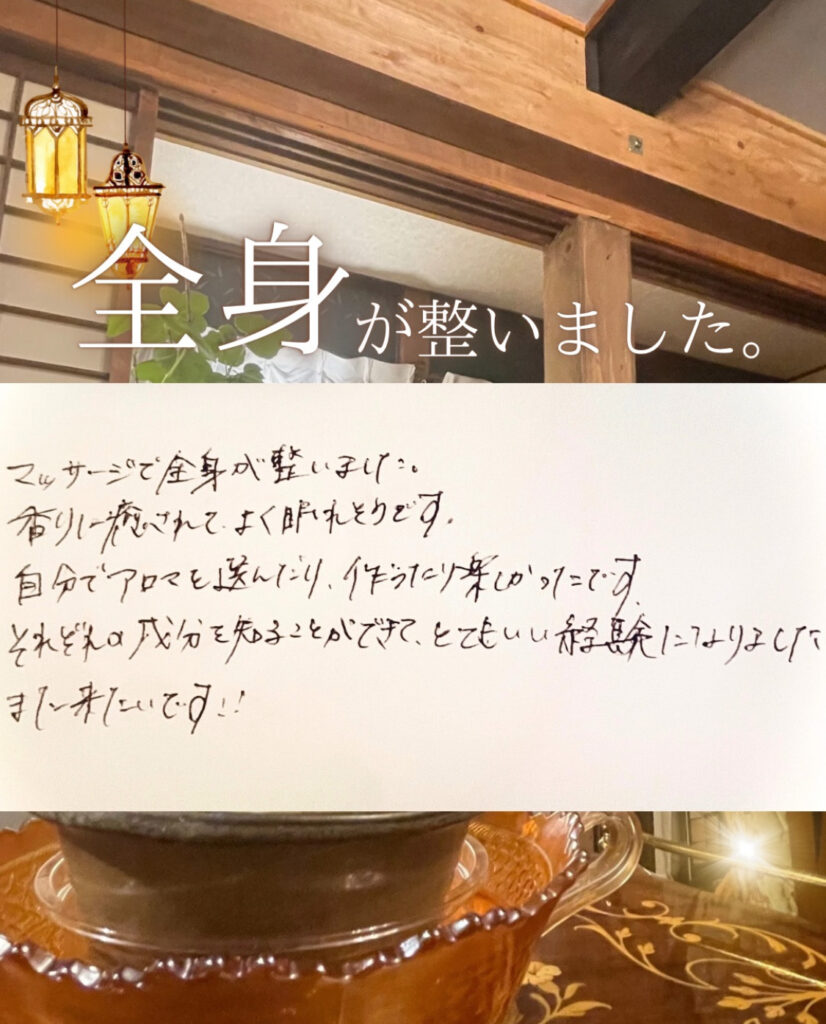 全身が整いました。
マッサージで全身が整いました。
香りに癒されて、よく眠れそうです。
自分でアロマを選んだり、作ったり楽しかったです。
それぞれの成分を知ることができて、とてもいい経験になりました
また来たいです!!